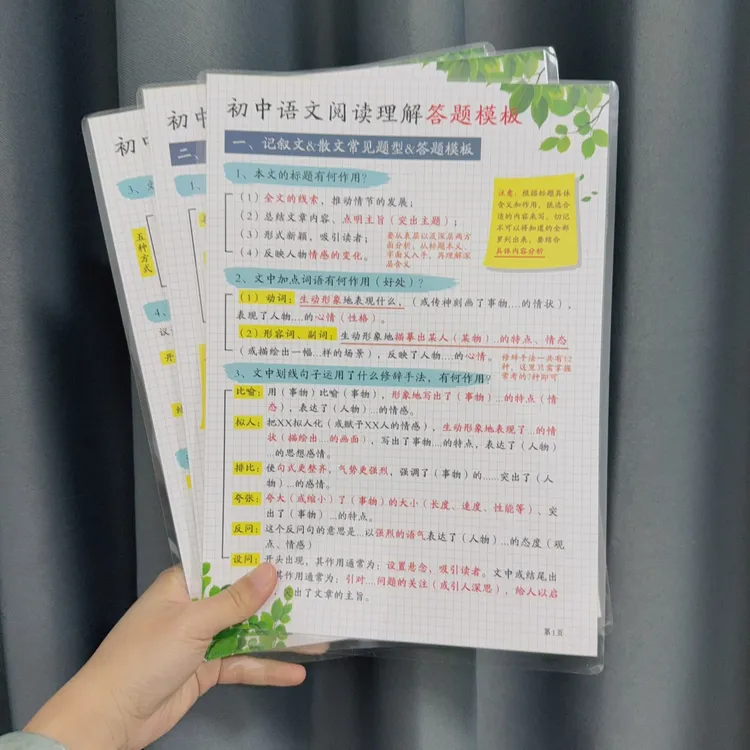 初中语文阅读理解答题模板
一、记叙文&散文常见题型&答题模板
1、本文的标题有何作用?
(1)全文的线索,推动情节的发展;
(2)总结文章内容,点明主旨(突出主题);
(3)形式新颖,吸引读者;
(4)反映人物情感的变化。
要从表层以及深层两方
面分析,从标题本义、
字面义入手,再理解深
层含义
注意:根据标题具体
含义和作用,挑选合
适的内容来写,切记
不可以将知道的全部
罗列出来,要结合
具体内容分析
2、文中加点词语有何作用(好处)?
(1)动词:生动形象地表现什么,(或传神刻画了事物....的情状),
表现了人物....的心情(性格)。
(2)形容词、副词:生动形象地描摹出某人(某物)...的特点、情态
(或描绘出一幅..样的场景),反映了人物....的心情。
修辞手法一共有12
种,这里只需掌握
常考的7种即可
3、文中划线句子运用了什么修辞手法,有何作用?
比喻:用(事物)比喻(事物),形象地写出了(事物)...的特点(情
态),表达了(人物)...的情感。
拟人:把XX拟人化(或赋予XX人的情感),生动形象地表现了...的情
状(描绘出...的画面),写出了事物...的特点,表达了(人物)
...的思想感情。
排比:使句式更整齐,气势更强烈,强调了(事物)的......突出了(人
物)...的感情。
夸张:夸大(或缩小)了(事物)的大小(长度、速度、性能等)、突
出了(事物)...的特点。
反问:这个反问句的意思是...以强烈的语气表达了(人物)...的态度(观
点、情感)
设问:开头出现,其作用通常为:设置悬念,吸引读者。文中或结尾出
其作用通常为:引对....问题的关注(或引人深思),给人以启
出了文章的主旨。
第1页
初中
二、
1、
初中
3、
五种方式
4、
议
开